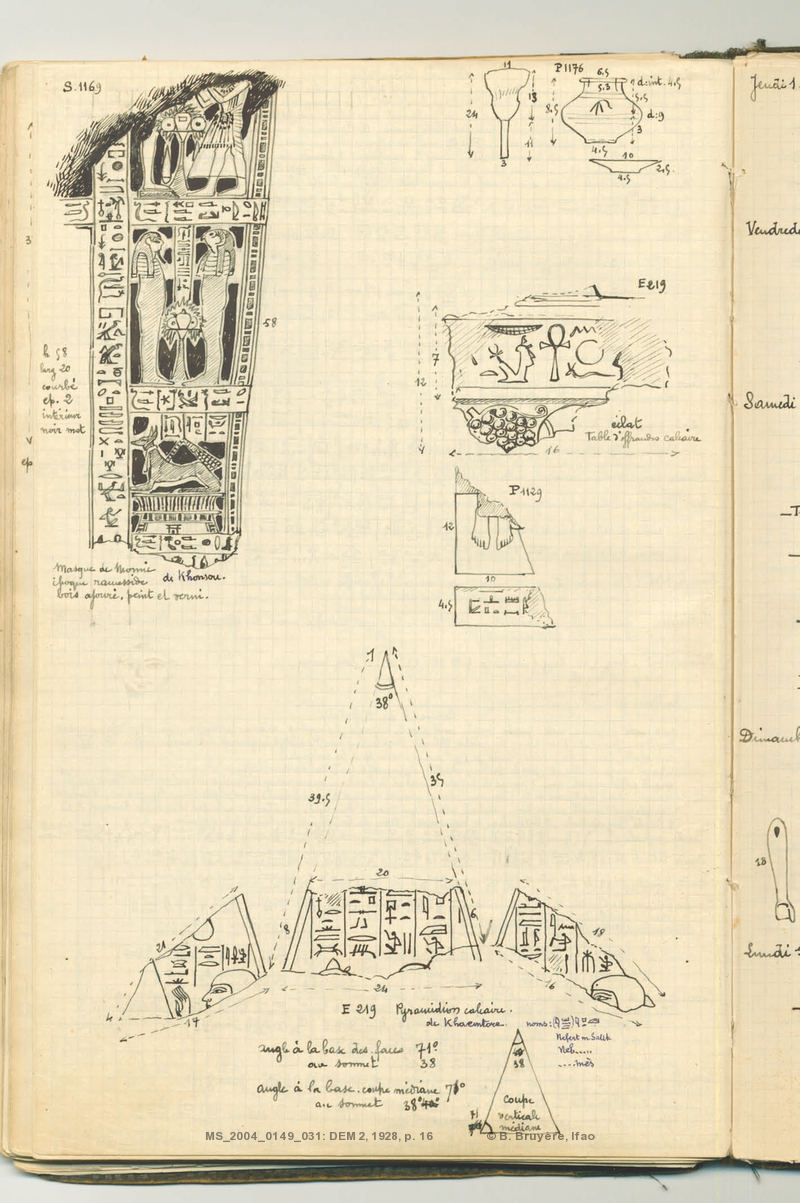 S.1169
3
58
h 58
larg 20
courbé
ep. 2
intérieur
noir mat
ep
Masque de Momie
époque ramesside de Khonsou.
bois ajouré, peint et verni.
11
24
13
11
3
P1176
6.5
5.3
d:int. 4.5
5.5
8.5
d:9
3
4.5
10
2.5
4.5
E219
7
12
éclat
Table d'offrandes calcaire
16
P1129
12
10
4.5
1
38°
39.5
35
20
21
18
6
18
17
24
16
E 219 Pyramidion calcaire.
de Khaemtore. noms:
Nefert m Sateh
Neb.....
....mès
angle à la base des faces 71°
au sommet 38
angle à la base. coupe médiane 71°
au sommet 38°
38
coupe
verticale
médiane
71
Jeudi 1
Vendred
Samedi
Dimanch
18
Lundi
MS_2004_0149_031: DEM 2, 1928, p. 16 © B. Bruyère, Ifao